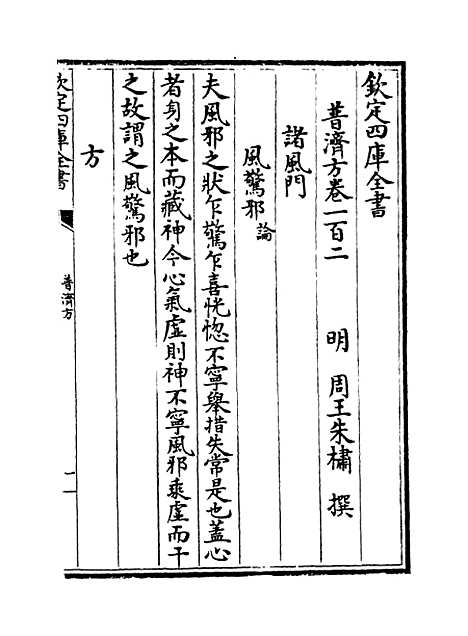 欽定四庫全書
普濟方卷一百二
明 周王朱橚 撰
諸風門
風驚邪論
夫風邪之狀乍驚乍喜恍惚不寧舉措失常是也蓋心
者身之本而藏神今心氣虛則神不寧風邪乘虛而干
之故謂之風驚邪也
方
欽定四庫全書
普濟方